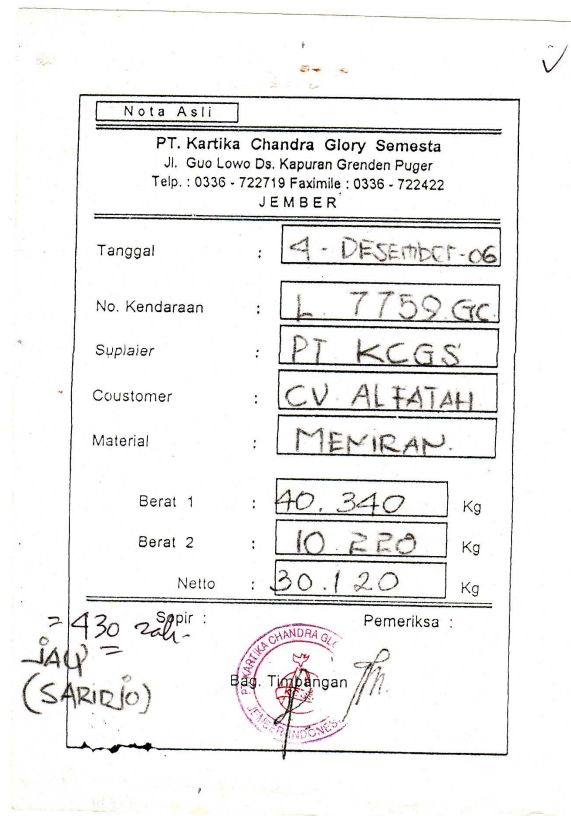 Nota Asli
PT. Kartika Chandra Glory Semesta
Jl. Guo Lowo Ds. Kapuran Grenden Puger
Telp. : 0336 - 722719 Faximile : 0336 - 722422
JEMBER
Tanggal : 4 - DESEMBER - 06
No. Kendaraan : L 7759 GC
Suplaier : PT KCGS
Coustomer : CV. ALFATAH
Material : MENIRAN.
Berat 1 : 40.340 Kg
Berat 2 : 10.220 Kg
Netto : 30.120 Kg
Sopir : Pemeriksa :
= 430 zak-
(SARIDJO)
Bag. Timbangan
PT. KARTIKA CHANDRA GLO
JEMBER INDONES